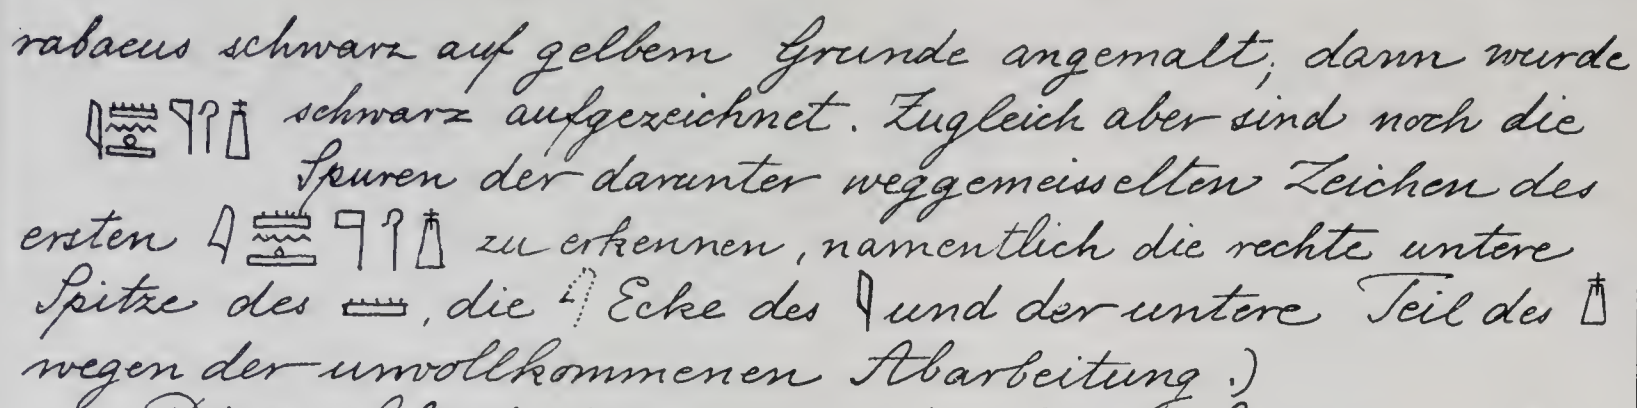 rabaeus schwarz auf gelbem Grunde angemalt, dann wurde
𓇋𓏠𓈖𓊵𓊹𓋾𓉺 schwarz aufgezeichnet. Zugleich aber sind noch die
Spuren der darunter weggemeisselten Zeichen des
ersten 𓇋𓏠𓈖𓊵𓊹𓋾𓉺 zu erkennen, namentlich die rechte untere
Spitze des 𓏠, die Ecke des 𓇋 und der untere Teil des 𓉺
wegen der unvollkommenen Abarbeitung.)